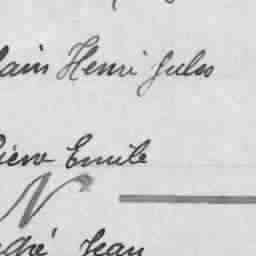 lain Henri Jules
Emile
N
dré Jean